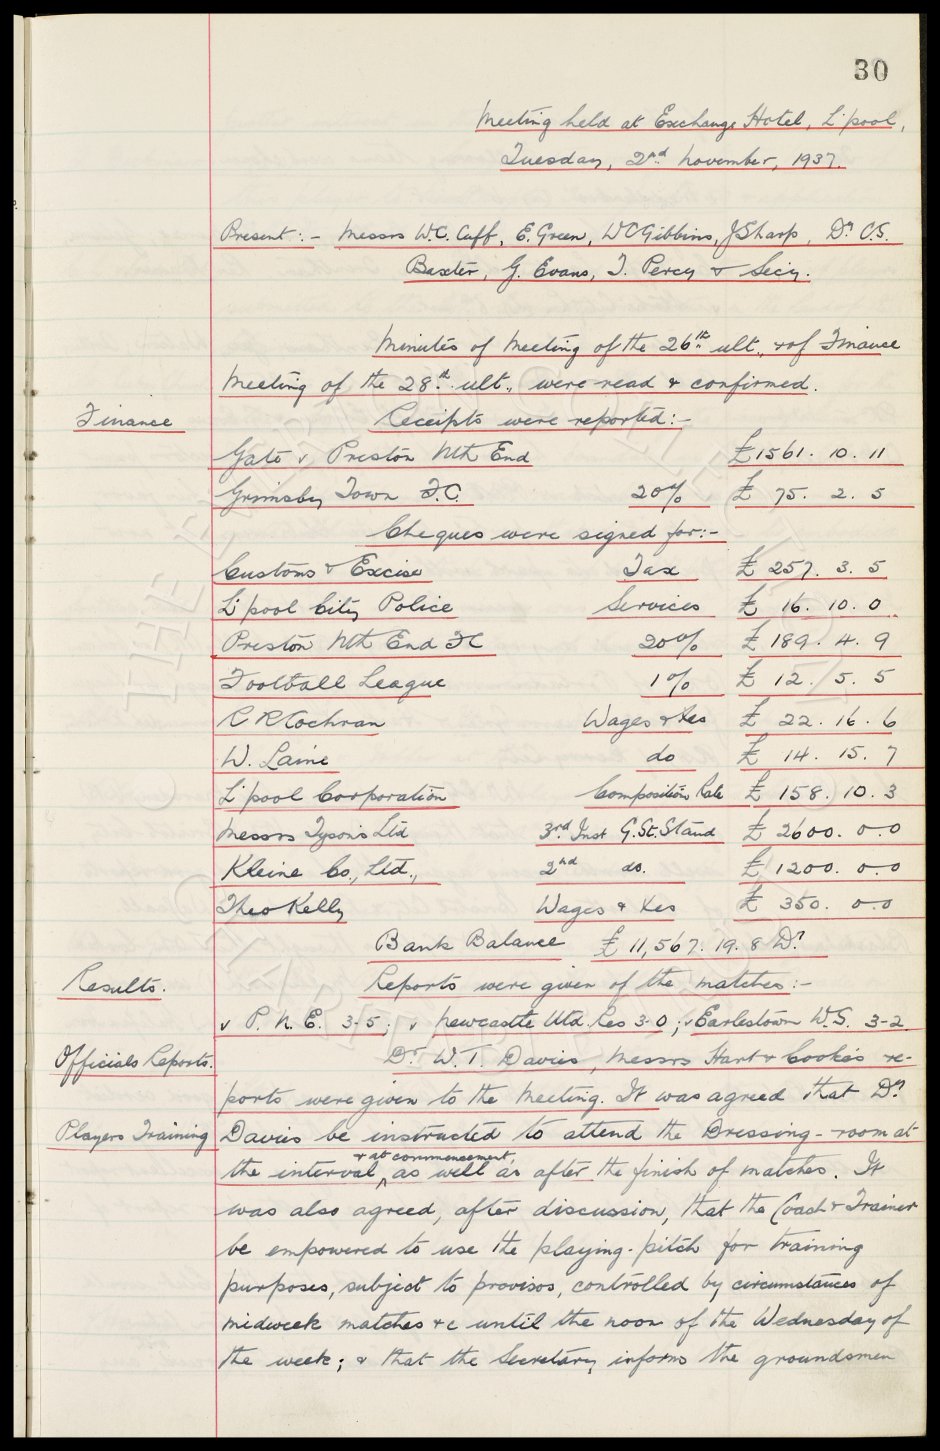 30
Meeting held at Exchange Hotel, L'pool,
Tuesday, 2nd November, 1937.
Present:- Messrs W.C. Cuff, E. Green, W C Gibbins, J Sharp, Dr. C.S.
Baxter, G. Evans, T. Percy & Secy.
Minutes of Meeting of the 26th ult., & of Finance
Meeting of the 28th ult., were read & confirmed.
Finance Receipts were reported:-
Gate v Preston Nth End £1561. 10. 11
Grimsby Town F.C. 20% £ 75. 2. 5
Cheques were signed for:-
Customs & Excise Tax £ 257. 3. 5
L'pool City Police Services £ 16. 10. 0
Preston Nth End FC 20% £ 189. 4. 9
Football League 1% £ 12. 5. 5
C R Cochran Wages & Xes £ 22. 16. 6
W. Laine do £ 14. 15. 7
L'pool Corporation Composition Rate £ 158. 10. 3
Messrs Tysons Ltd 3rd Inst G. St. Stand £ 2600. 0.0
Kleine Co., Ltd., 2nd do. £ 1200. 0.0
Theo Kelly Wages & Xes £ 350. 0.0
Bank Balance £ 11,567. 19. 8 Dr.
Results. Reports were given of the matches:-
v P. N. E. 3-5; v Newcastle Utd. Res 3-0; v Earlestown W.S. 3-2
Officials Reports. Dr. W. T. Davies, Messrs Hart & Cooke's re-
ports were given to the Meeting. It was agreed that Dr.
Players Training Davies be instructed to attend the Dressing-room at
the interval, & at commencement, as well as after the finish of matches. It
was also agreed, after discussion, that the Coach & Trainer
be empowered to use the playing-pitch for training
purposes, subject to provisos, controlled by circumstances of
midweek matches &c until the noon of the Wednesday of
the week; & that the Secretary informs the groundsmen